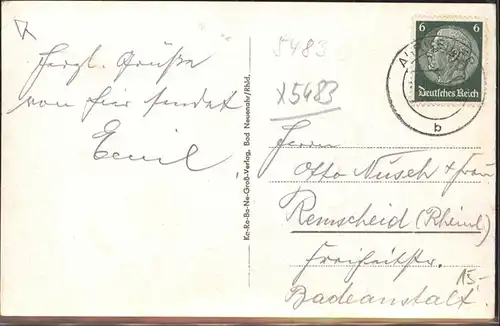 Herzl. Grüße
von hier sendet
Emil.
5483
x5483
Ka-Ra-Ba-Ne-Groß-Verlag, Bad Neuenahr/Rhld.
6 6
Deutsches Reich
b
Herrn
Otto Nusch + Frau
Remscheid (Rheinl)
Freiheitstr.
15.-
Badeanstalt.